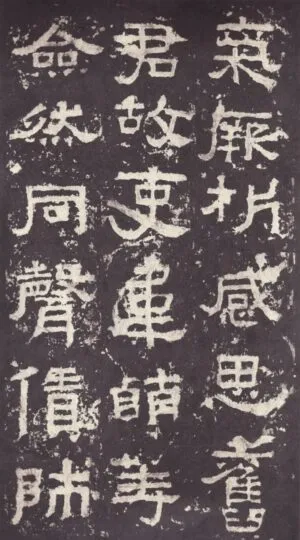 氣厥析感思舊
君故吏韋萌等
僉然同聲賃師